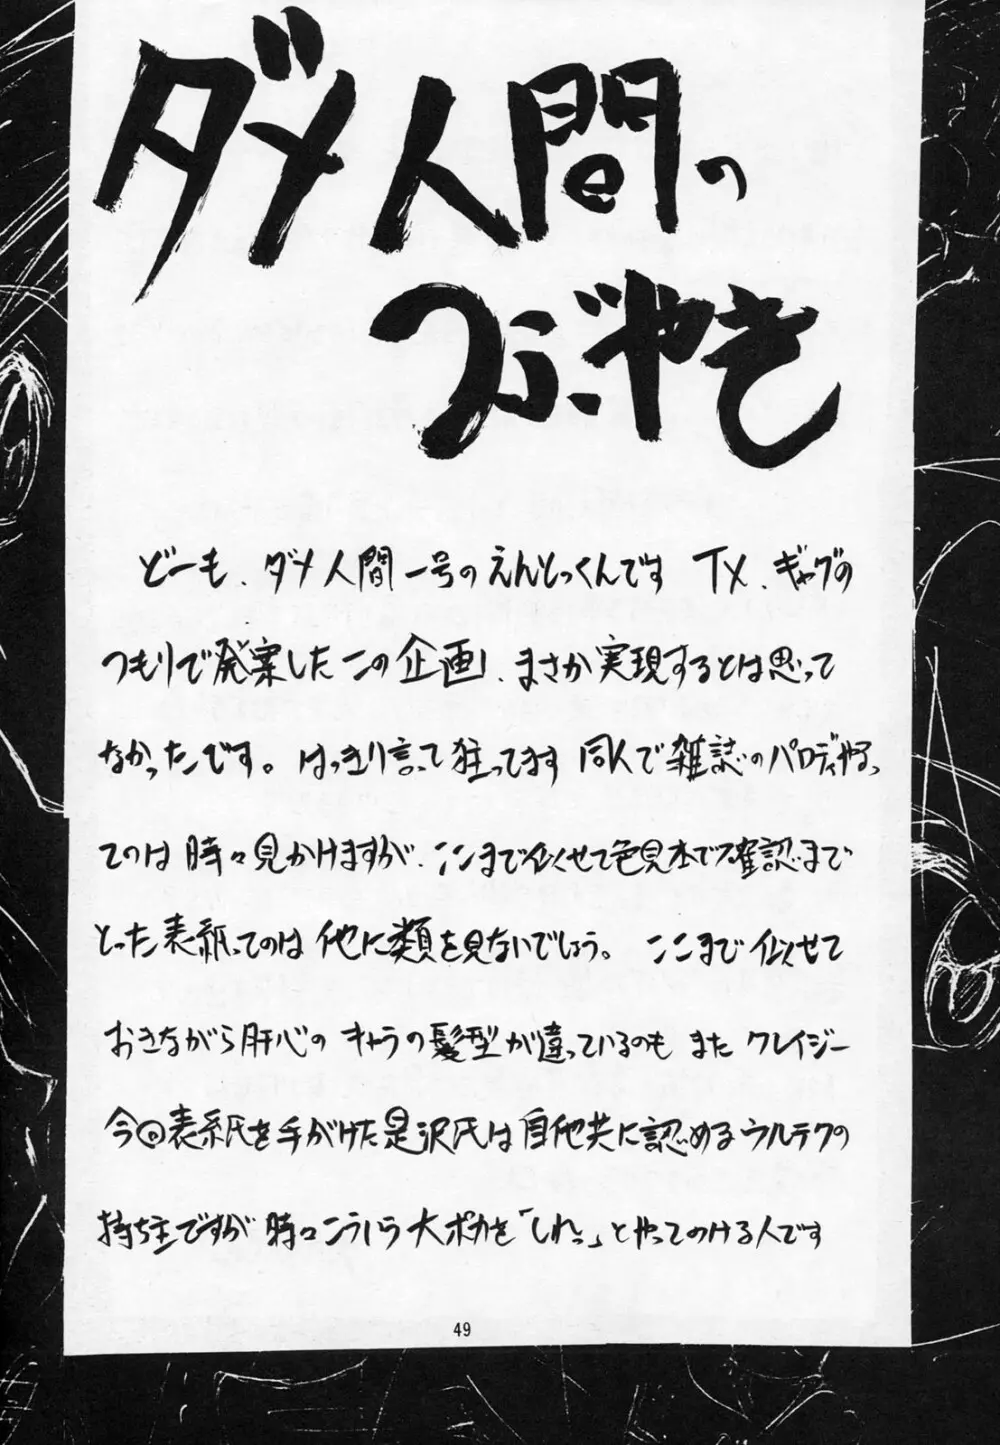 ダメ人間の
つぶやき
どーも、ダメ人間一号のえんどっくんです TX、ギャグの
つもりで発案したこの企画、まさか実現するとは思って
なかったです。はっきり言って狂ってます 同人で雑誌のパロディやっ
てのは時々見かけますが、ここまで似せて色見本で確認まで
とった表紙ってのは他に類を見ないでしょう。ここまで似せて
おきながら肝心のキャラの髪型が違っているのもまたクレイジー
今回表紙を手がけた是沢氏は自他共に認めるウルテクの
持ち主ですが時々こういう大ポカを「しれっ」とやってのける人です
49